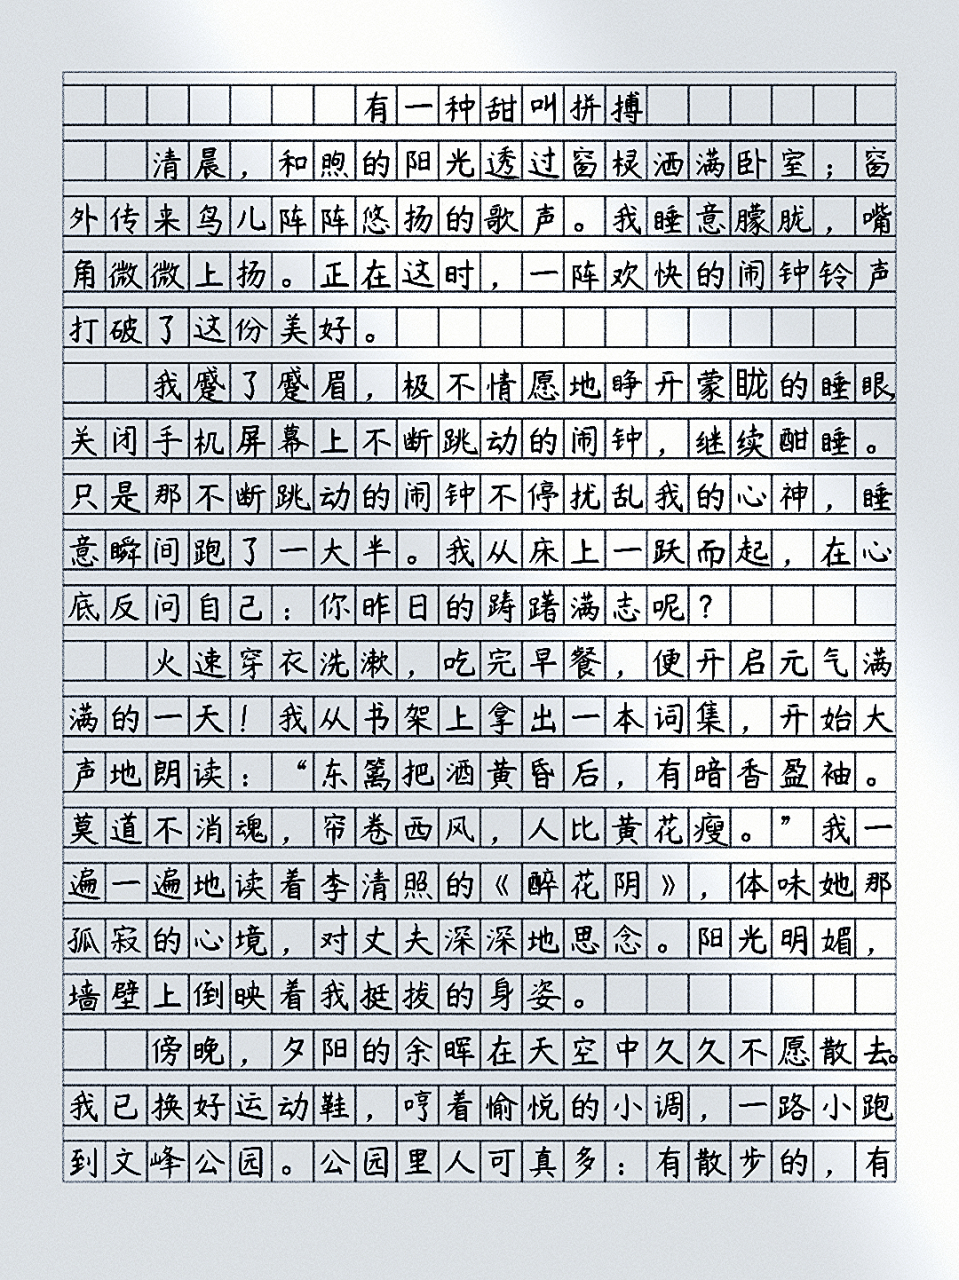 有一种甜叫拼搏
清晨，和煦的阳光透过窗棂洒满卧室；窗
外传来鸟儿阵阵悠扬的歌声。我睡意朦胧，嘴
角微微上扬。正在这时，一阵欢快的闹钟铃声
打破了这份美好。
我蹙了蹙眉，极不情愿地睁开蒙眬的睡眼，
关闭手机屏幕上不断跳动的闹钟，继续酣睡。
只是那不断跳动的闹钟不停扰乱我的心神，睡
意瞬间跑了一大半。我从床上一跃而起，在心
底反问自己：你昨日的踌躇满志呢？
火速穿衣洗漱，吃完早餐，便开启元气满
满的一天！我从书架上拿出一本词集，开始大
声地朗读：“东篱把酒黄昏后，有暗香盈袖。
莫道不消魂，帘卷西风，人比黄花瘦。”我一
遍一遍地读着李清照的《醉花阴》，体味她那
孤寂的心境，对丈夫深深地思念。阳光明媚，
墙壁上倒映着我挺拔的身姿。
傍晚，夕阳的余晖在天空中久久不愿散去。
我已换好运动鞋，哼着愉悦的小调，一路小跑
到文峰公园。公园里人可真多：有散步的，有